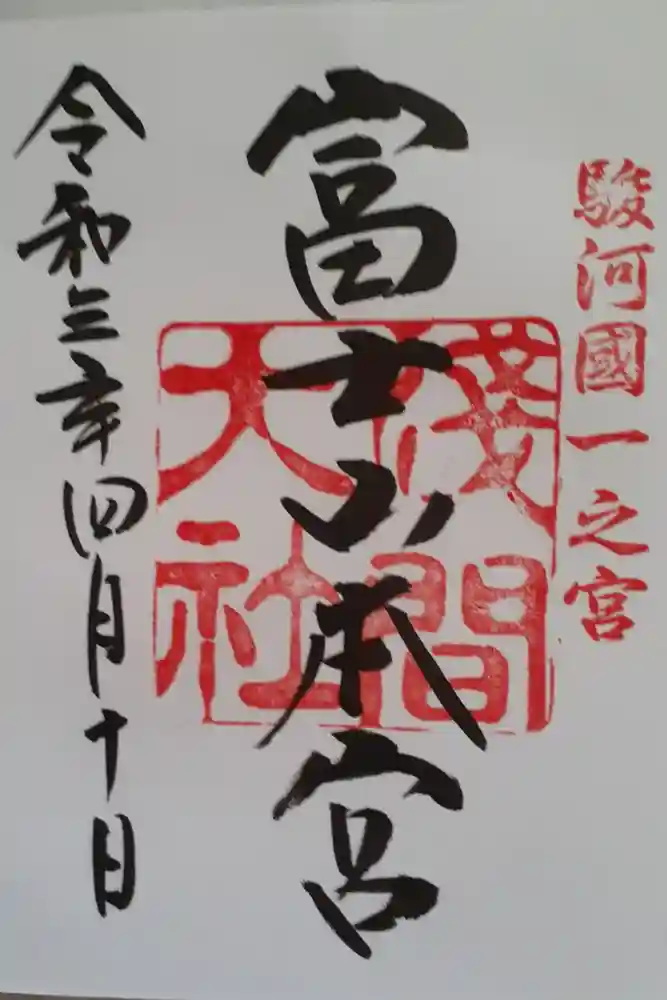 駿河國一之宮
富士山本宮
淺間
大社
令和三年四月十日